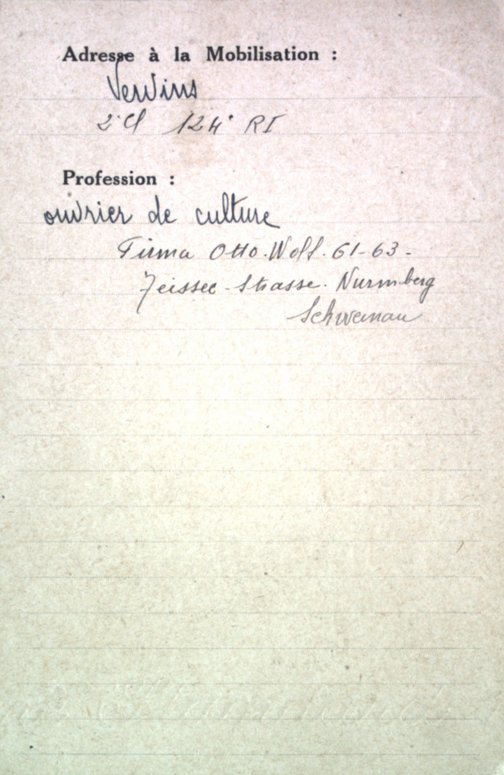 Adresse à la Mobilisation :
Vervins
2e Cl 124e RI
Profession :
ouvrier de culture
Firma Otto Wolf. 61-63-
Strasse. Nurmberg
Schweinau